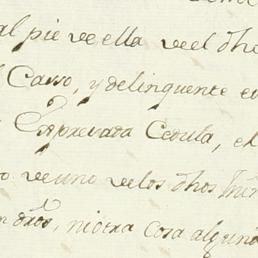 al pie de ella, u el dho
Casso, y delinquente en
Expresada Cedula, el
o de uno u de los dhos
n dros, ni otra cosa alguna